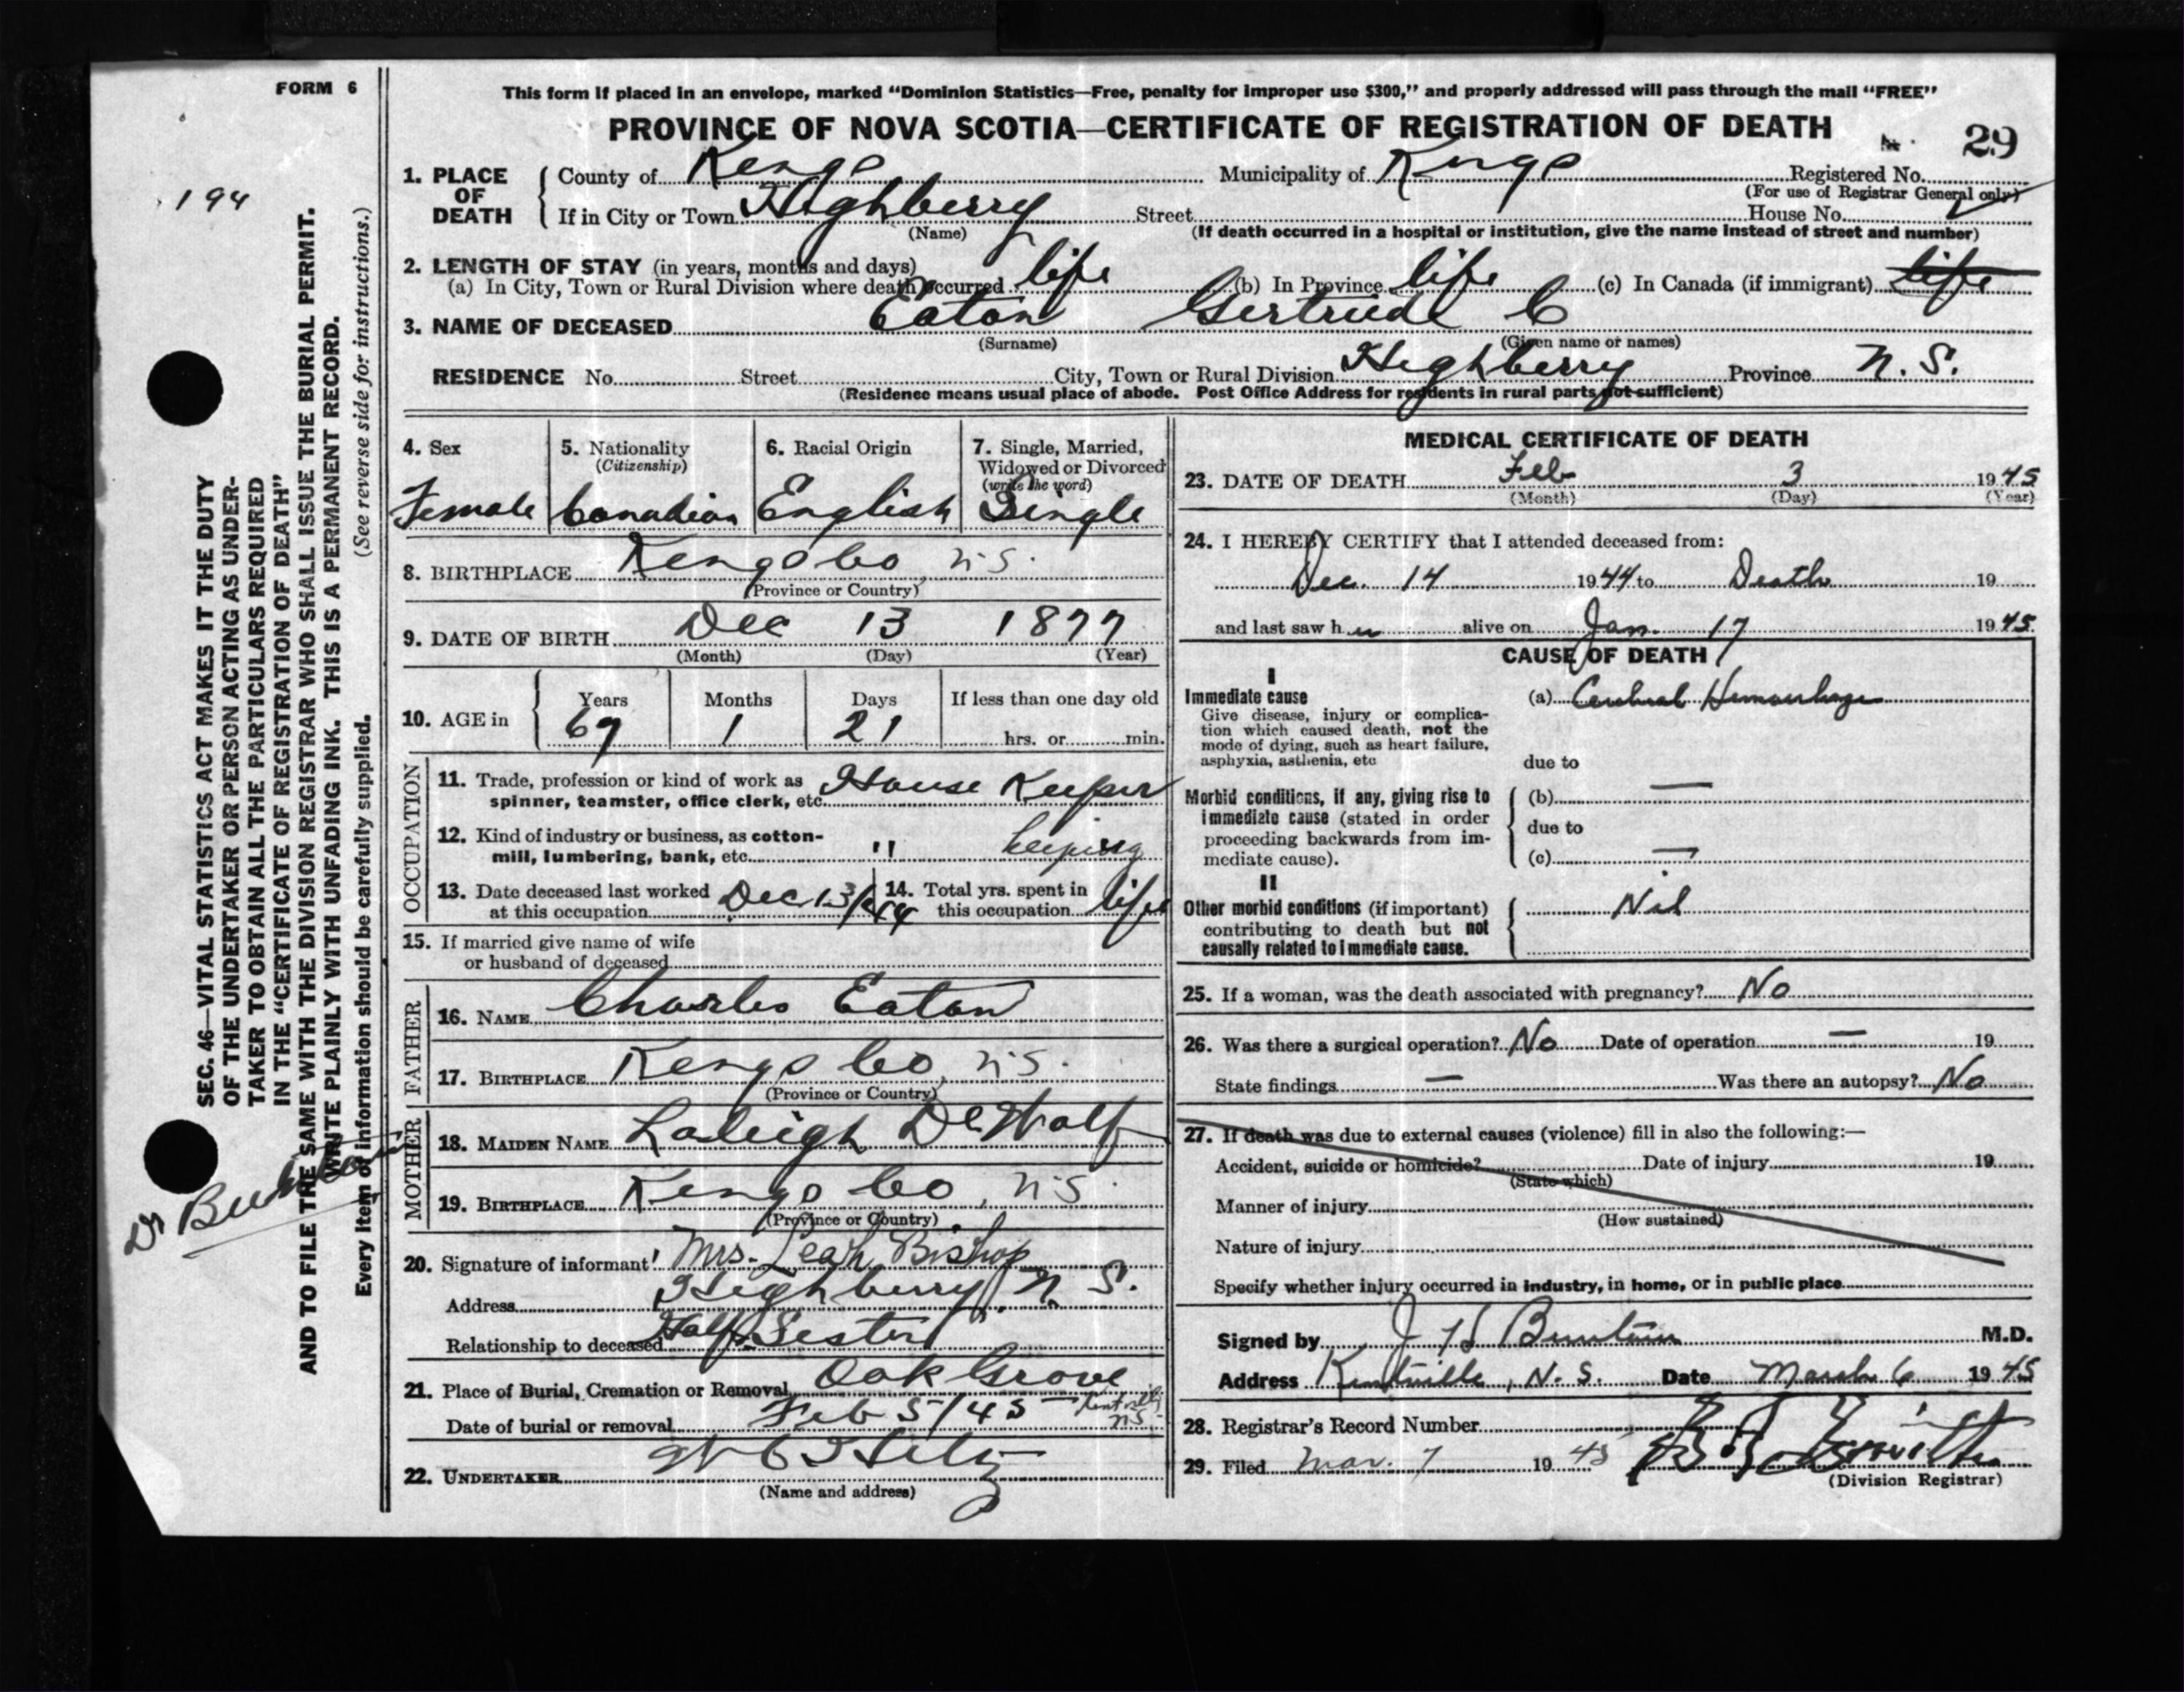 FORM 6
This form if placed in an envelope, marked "Dominion Statistics—Free, penalty for improper use $300," and properly addressed will pass through the mail "FREE"
PROVINCE OF NOVA SCOTIA—CERTIFICATE OF REGISTRATION OF DEATH
29
194
1. PLACE OF DEATH
County of Kings Municipality of Kings Registered No.
(For use of Registrar General only)
If in City or Town Highberry Street House No.
(Name) (If death occurred in a hospital or institution, give the name instead of street and number)
2. LENGTH OF STAY (in years, months and days)
(a) In City, Town or Rural Division where death occurred life (b) In Province life (c) In Canada (if immigrant) life
3. NAME OF DECEASED Eaton Gertrude C
(Surname) (Given name or names)
RESIDENCE No. Street City, Town or Rural Division Highberry Province N.S.
(Residence means usual place of abode. Post Office Address for residents in rural parts not sufficient)
4. Sex Female
5. Nationality (Citizenship) Canadian
6. Racial Origin English
7. Single, Married, Widowed or Divorced (write the word) Single
8. BIRTHPLACE Kings Co, N.S.
(Province or Country)
9. DATE OF BIRTH Dec 13 1877
(Month) (Day) (Year)
10. AGE in Years 67 Months 1 Days 21 If less than one day old hrs. or min.
OCCUPATION
11. Trade, profession or kind of work as spinner, teamster, office clerk, etc. House Keeper
12. Kind of industry or business, as cotton-mill, lumbering, bank, etc. " keeping
13. Date deceased last worked at this occupation Dec 13/44
14. Total yrs. spent in this occupation life
15. If married give name of wife or husband of deceased
FATHER
16. NAME Charles Eaton
17. BIRTHPLACE Kings Co, N.S.
(Province or Country)
MOTHER
18. MAIDEN NAME Laleigh DeWolf
19. BIRTHPLACE Kings Co, N.S.
(Province or Country)
20. Signature of informant Mrs. Leah Bishop
Address Highberry, N.S.
Relationship to deceased Half Sister
21. Place of Burial, Cremation or Removal Oak Grove
Date of burial or removal Feb 5/45 Kentville N.S.
22. UNDERTAKER
(Name and address)
MEDICAL CERTIFICATE OF DEATH
23. DATE OF DEATH Feb 3 1945
(Month) (Day) (Year)
24. I HEREBY CERTIFY that I attended deceased from:
Dec. 14 1944 to Death 19
and last saw her alive on Jan. 17 1945
CAUSE OF DEATH
I
Immediate cause (a) Cerebral Hemorrhage
Give disease, injury or complication which caused death, not the mode of dying, such as heart failure, asphyxia, asthenia, etc
due to
Morbid conditions, if any, giving rise to immediate cause (stated in order proceeding backwards from immediate cause).
(b) —
due to
(c) —
II
Other morbid conditions (if important) contributing to death but not causally related to immediate cause.
Nil
25. If a woman, was the death associated with pregnancy? No
26. Was there a surgical operation? No Date of operation — 19
State findings — Was there an autopsy? No
27. If death was due to external causes (violence) fill in also the following:—
Accident, suicide or homicide? Date of injury 19
(State which)
Manner of injury
(How sustained)
Nature of injury
Specify whether injury occurred in industry, in home, or in public place
Signed by J H Buntain M.D.
Address Kentville, N.S. Date March 6 1945
28. Registrar's Record Number
29. Filed Mar. 7 1945
(Division Registrar)
SEC. 46—VITAL STATISTICS ACT MAKES IT THE DUTY
OF THE UNDERTAKER OR PERSON ACTING AS UNDER-
TAKER TO OBTAIN ALL THE PARTICULARS REQUIRED
IN THE "CERTIFICATE OF REGISTRATION OF DEATH"
AND TO FILE THE SAME WITH THE DIVISION REGISTRAR WHO SHALL ISSUE THE BURIAL PERMIT.
WRITE PLAINLY WITH UNFADING INK. THIS IS A PERMANENT RECORD.
Every item of information should be carefully supplied. (See reverse side for instructions.)
Dr Buntain